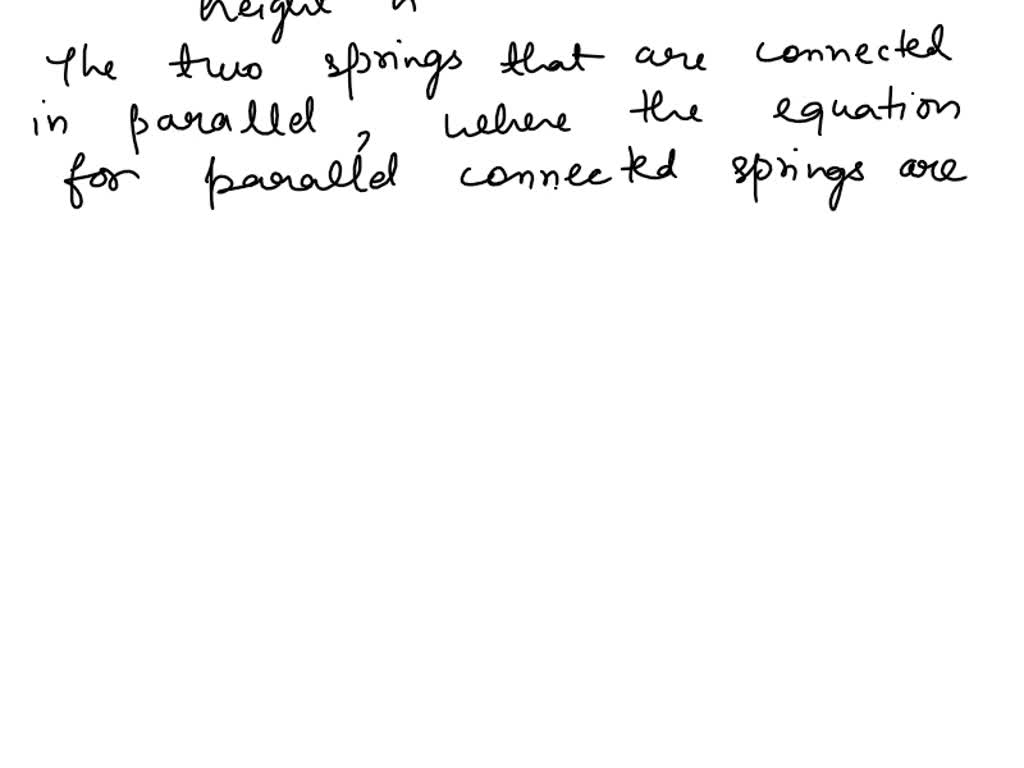 height h
The two springs that are connected
in parallel, where the equation
for parallel connected springs are